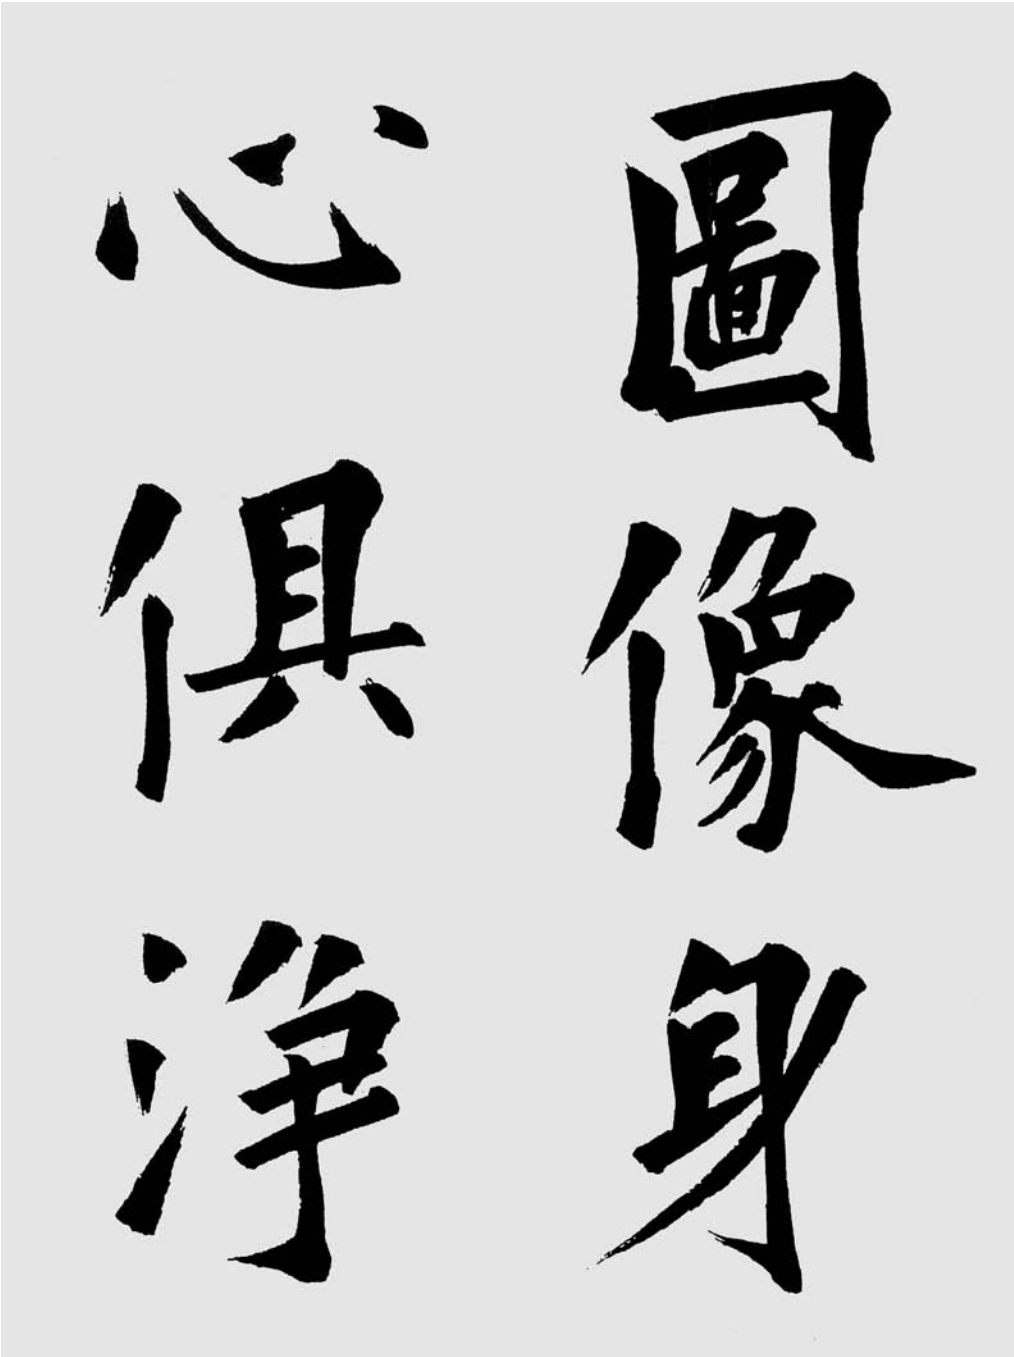 圖像身
心俱淨